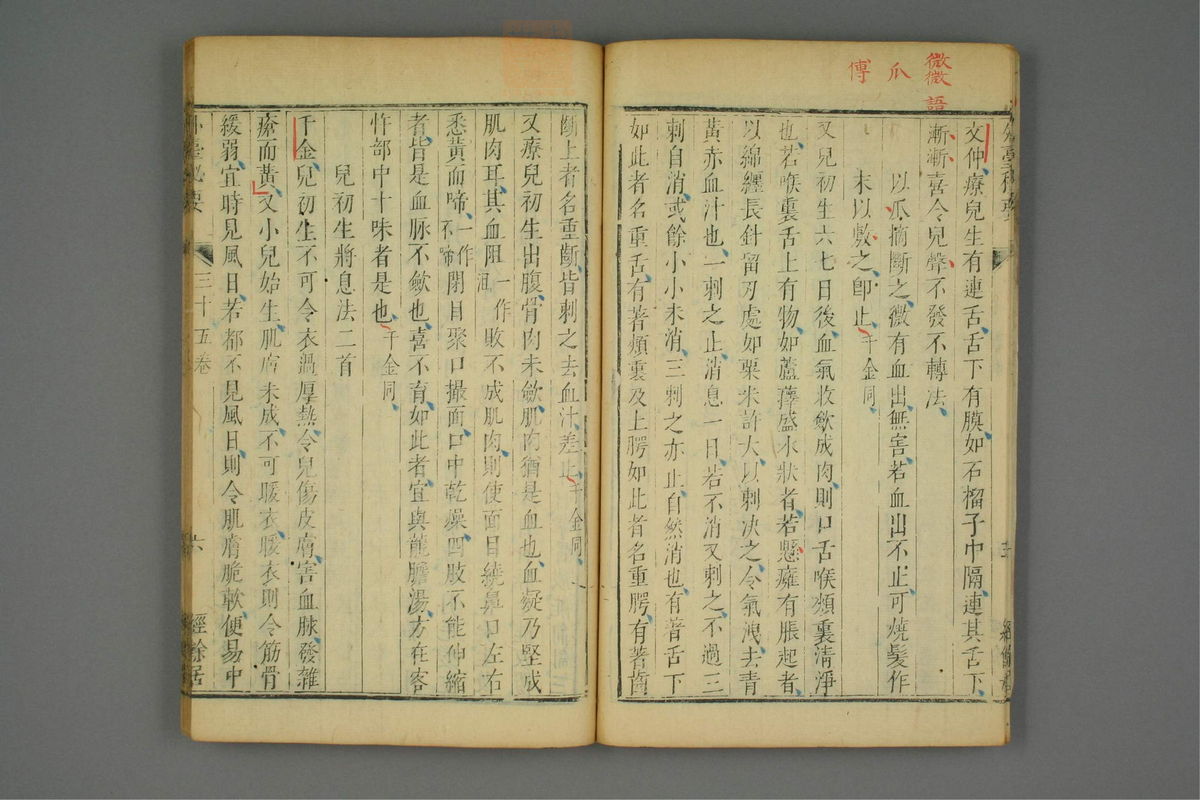 微徵語
爪
傅
文仲療兒生有連舌舌下有膜如石榴子中隔連其舌下
漸漸喜令兒聲不發不轉法
以爪摘斷之微有血出無害若血出不止可燒髮作
末以敷之卽止千金同
又兒初生六七日後血氣收斂成肉則口舌喉頰裏清淨
也若喉裏舌上有物如蘆籜盛水狀者若懸癰有脹起者
以綿纏長針留刃處如粟米許大以刺決之令氣洩去青
黃赤血汁也一刺之止消息一日若不消又刺之不過三
刺自消或餘小小未消三刺之亦止自然消也有著舌下
如此者名重舌有著頰裏及上腭如此者名重腭有著齒
齗上者名重齗皆刺之去血汁差止千金同
又療兒初生出腹骨肉未斂肌肉猶是血也血凝乃堅成
肌肉耳其血阻一作沮敗不成肌肉則使面目繞鼻口左右
悉黃而啼一作不啼閉目聚口撮面口中乾燥四肢不能伸縮
者皆是血脉不斂也喜不育如此者宜與龍膽湯方在客
忤部中十味者是也千金同
兒初生將息法二首
千金兒初生不可令衣過厚熱令兒傷皮膚害血脉發雜
瘡而黃又小兒始生肌膚未成不可暖衣暖衣則令筋骨
緩弱宜時見風日若都不見風日則令肌膚脆軟便易中
三十五卷
六
經餘居